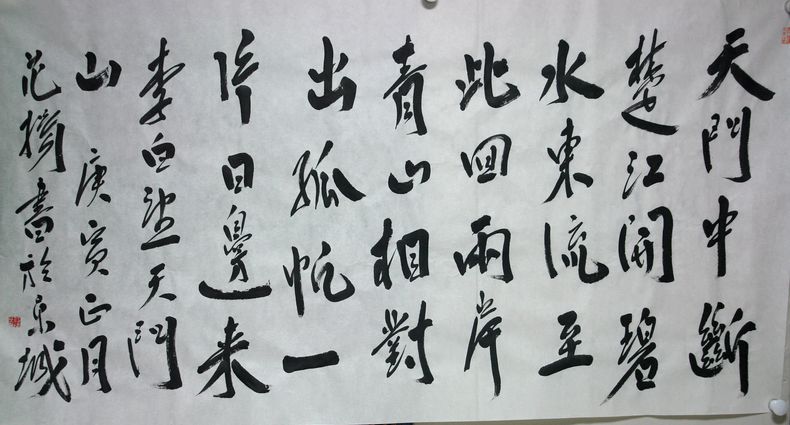 天門中斷
楚江開碧
水東流至
此回兩岸
青山相對
出孤帆一
片日邊来
李白望天門
山 庚寅正月
書於京城